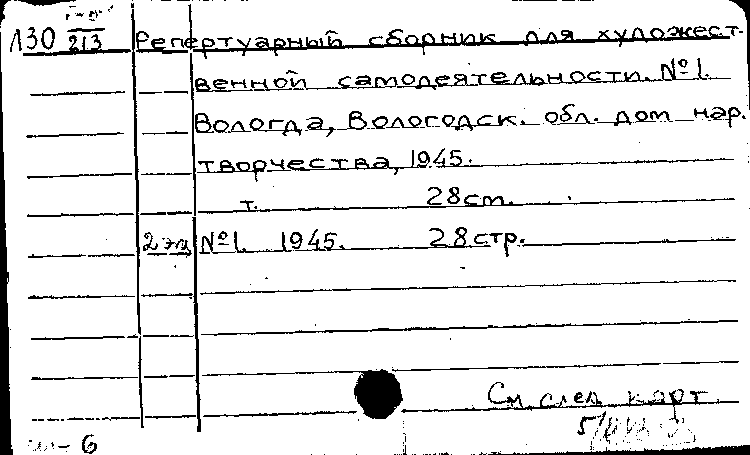 Л30 213 Репертуарный сборник для художест-
венной самодеятельности. №1.
Вологда, Вологодск. обл. дом нар.
творчества, 1945.
т. 28см.
2 экз №1. 1945. 28стр.
См. след. карт.
6